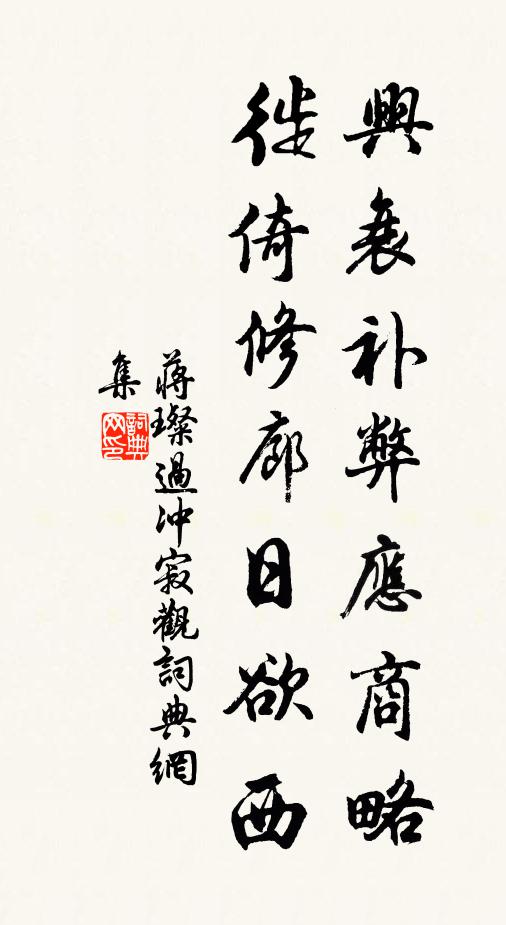 興衰补弊應商略
徙倚修廊日欲西
蔣璨過冲寂觀詞典網
集
詞典网印